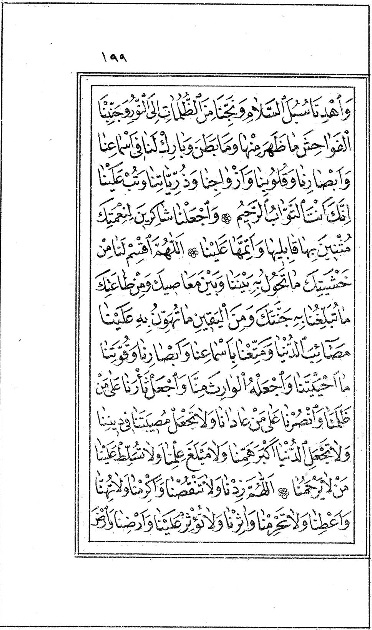 ١٩٩
وَاهْدِنَا سُبُلَ السَّلَامِ وَنَجِّنَا مِنَ الظُّلُمَاتِ اِلَى النُّورِ وَجَنِّبْنَا
الْفَوَاحِشَ مَا ظَهَرَ مِنْهَا وَمَا بَطَنَ وَبَارِكْ لَنَا فِى اَسْمَاعِنَا
وَاَبْصَارِنَا وَقُلُوبِنَا وَاَزْوَاجِنَا وَذُرِّيَّاتِنَا وَتُبْ عَلَيْنَا
اِنَّكَ اَنْتَ التَّوَّابُ الرَّحِيمُ ۞ وَاجْعَلْنَا شَاكِرِينَ لِنِعْمَتِكَ
مُثْنِينَ بِهَا قَابِلِيهَا وَاَتِمَّهَا عَلَيْنَا ۞ اَللّٰهُمَّ اقْسِمْ لَنَا مِنْ
خَشْيَتِكَ مَا تَحُولُ بِهِ بَيْنَنَا وَبَيْنَ مَعَاصِيكَ وَمِنْ طَاعَتِكَ
مَا تُبَلِّغُنَا بِهِ جَنَّتَكَ وَمِنَ الْيَقِينِ مَا تُهَوِّنُ بِهِ عَلَيْنَا
مَصَائِبَ الدُّنْيَا وَمَتِّعْنَا بِاَسْمَاعِنَا وَاَبْصَارِنَا وَقُوَّتِنَا
مَا اَحْيَيْتَنَا وَاجْعَلْهُ الْوَارِثَ مِنَّا وَاجْعَلْ ثَأْرَنَا عَلٰى مَنْ
ظَلَمَنَا وَانْصُرْنَا عَلٰى مَنْ عَادَانَا وَلَا تَجْعَلْ مُصِيبَتَنَا فِى دِينِنَا
وَلَا تَجْعَلِ الدُّنْيَا اَكْبَرَ هَمِّنَا وَلَا مَبْلَغَ عِلْمِنَا وَلَا تُسَلِّطْ عَلَيْنَا
مَنْ لَا يَرْحَمُنَا ۞ اَللّٰهُمَّ زِدْنَا وَلَا تَنْقُصْنَا وَاَكْرِمْنَا وَلَا تُهِنَّا
وَاَعْطِنَا وَلَا تَحْرِمْنَا وَاٰثِرْنَا وَلَا تُؤْثِرْ عَلَيْنَا وَاَرْضِنَا وَارْضَ